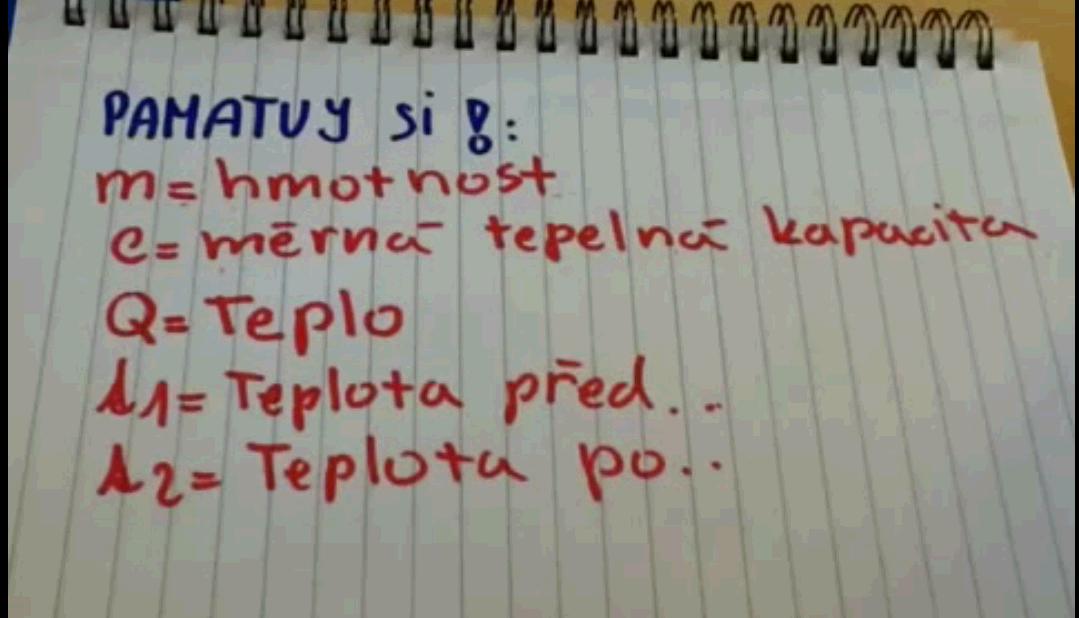 PAMATUY si !:
m= hmotnost
c= měrná tepelná kapacita
Q= Teplo
t1= Teplota před...
t2= Teplota po..